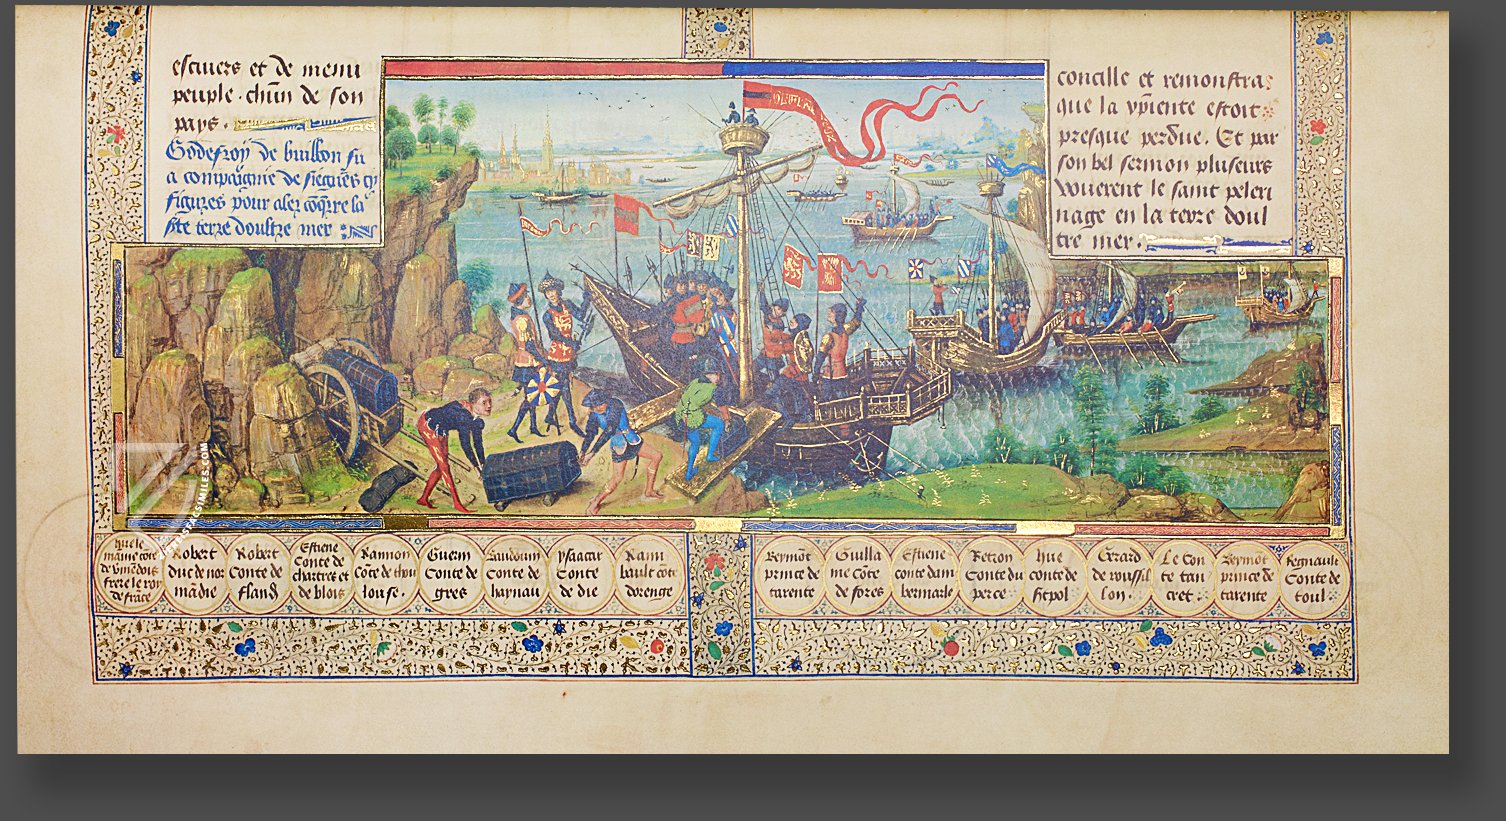 escuiers et de menu
peuple. chũn de son
pays.
Godefroy de buillon fu
a compaignie de
figures pour aler cõq̃rre la
ste terre doultre mer
concille et remonstra
que la vp̃iente estoit
presque perdue. Et par
son bel sermon pluseurs
vouerent le saint peleri
nage en la terre doul
tre mer.
hue le
maine côte
de vmẽdois
frere le roy
de frãce
Robert
duc de nor
mãdie
Robert
Conte de
flãnd
Estiene
Conte de
chartres et
de blois
Raimon
Cõte de thou
louse.
Guerin
Conte de
gres
Baudouin
Conte de
haynau
ysaacar
Conte
de die
Raim
bault cõte
dorenge
Beymõt
prince de
tarente
Guilla
me Cõte
de fores
Estiene
conte dam
bermarle
Retron
Conte du
perce
hue
conte de
st pol
Gerard
de roussil
lon.
Le Con
te tan
cret.
Beymõt
prince de
tarente
Regnault
Conte de
toul
FACSIMILES.COM